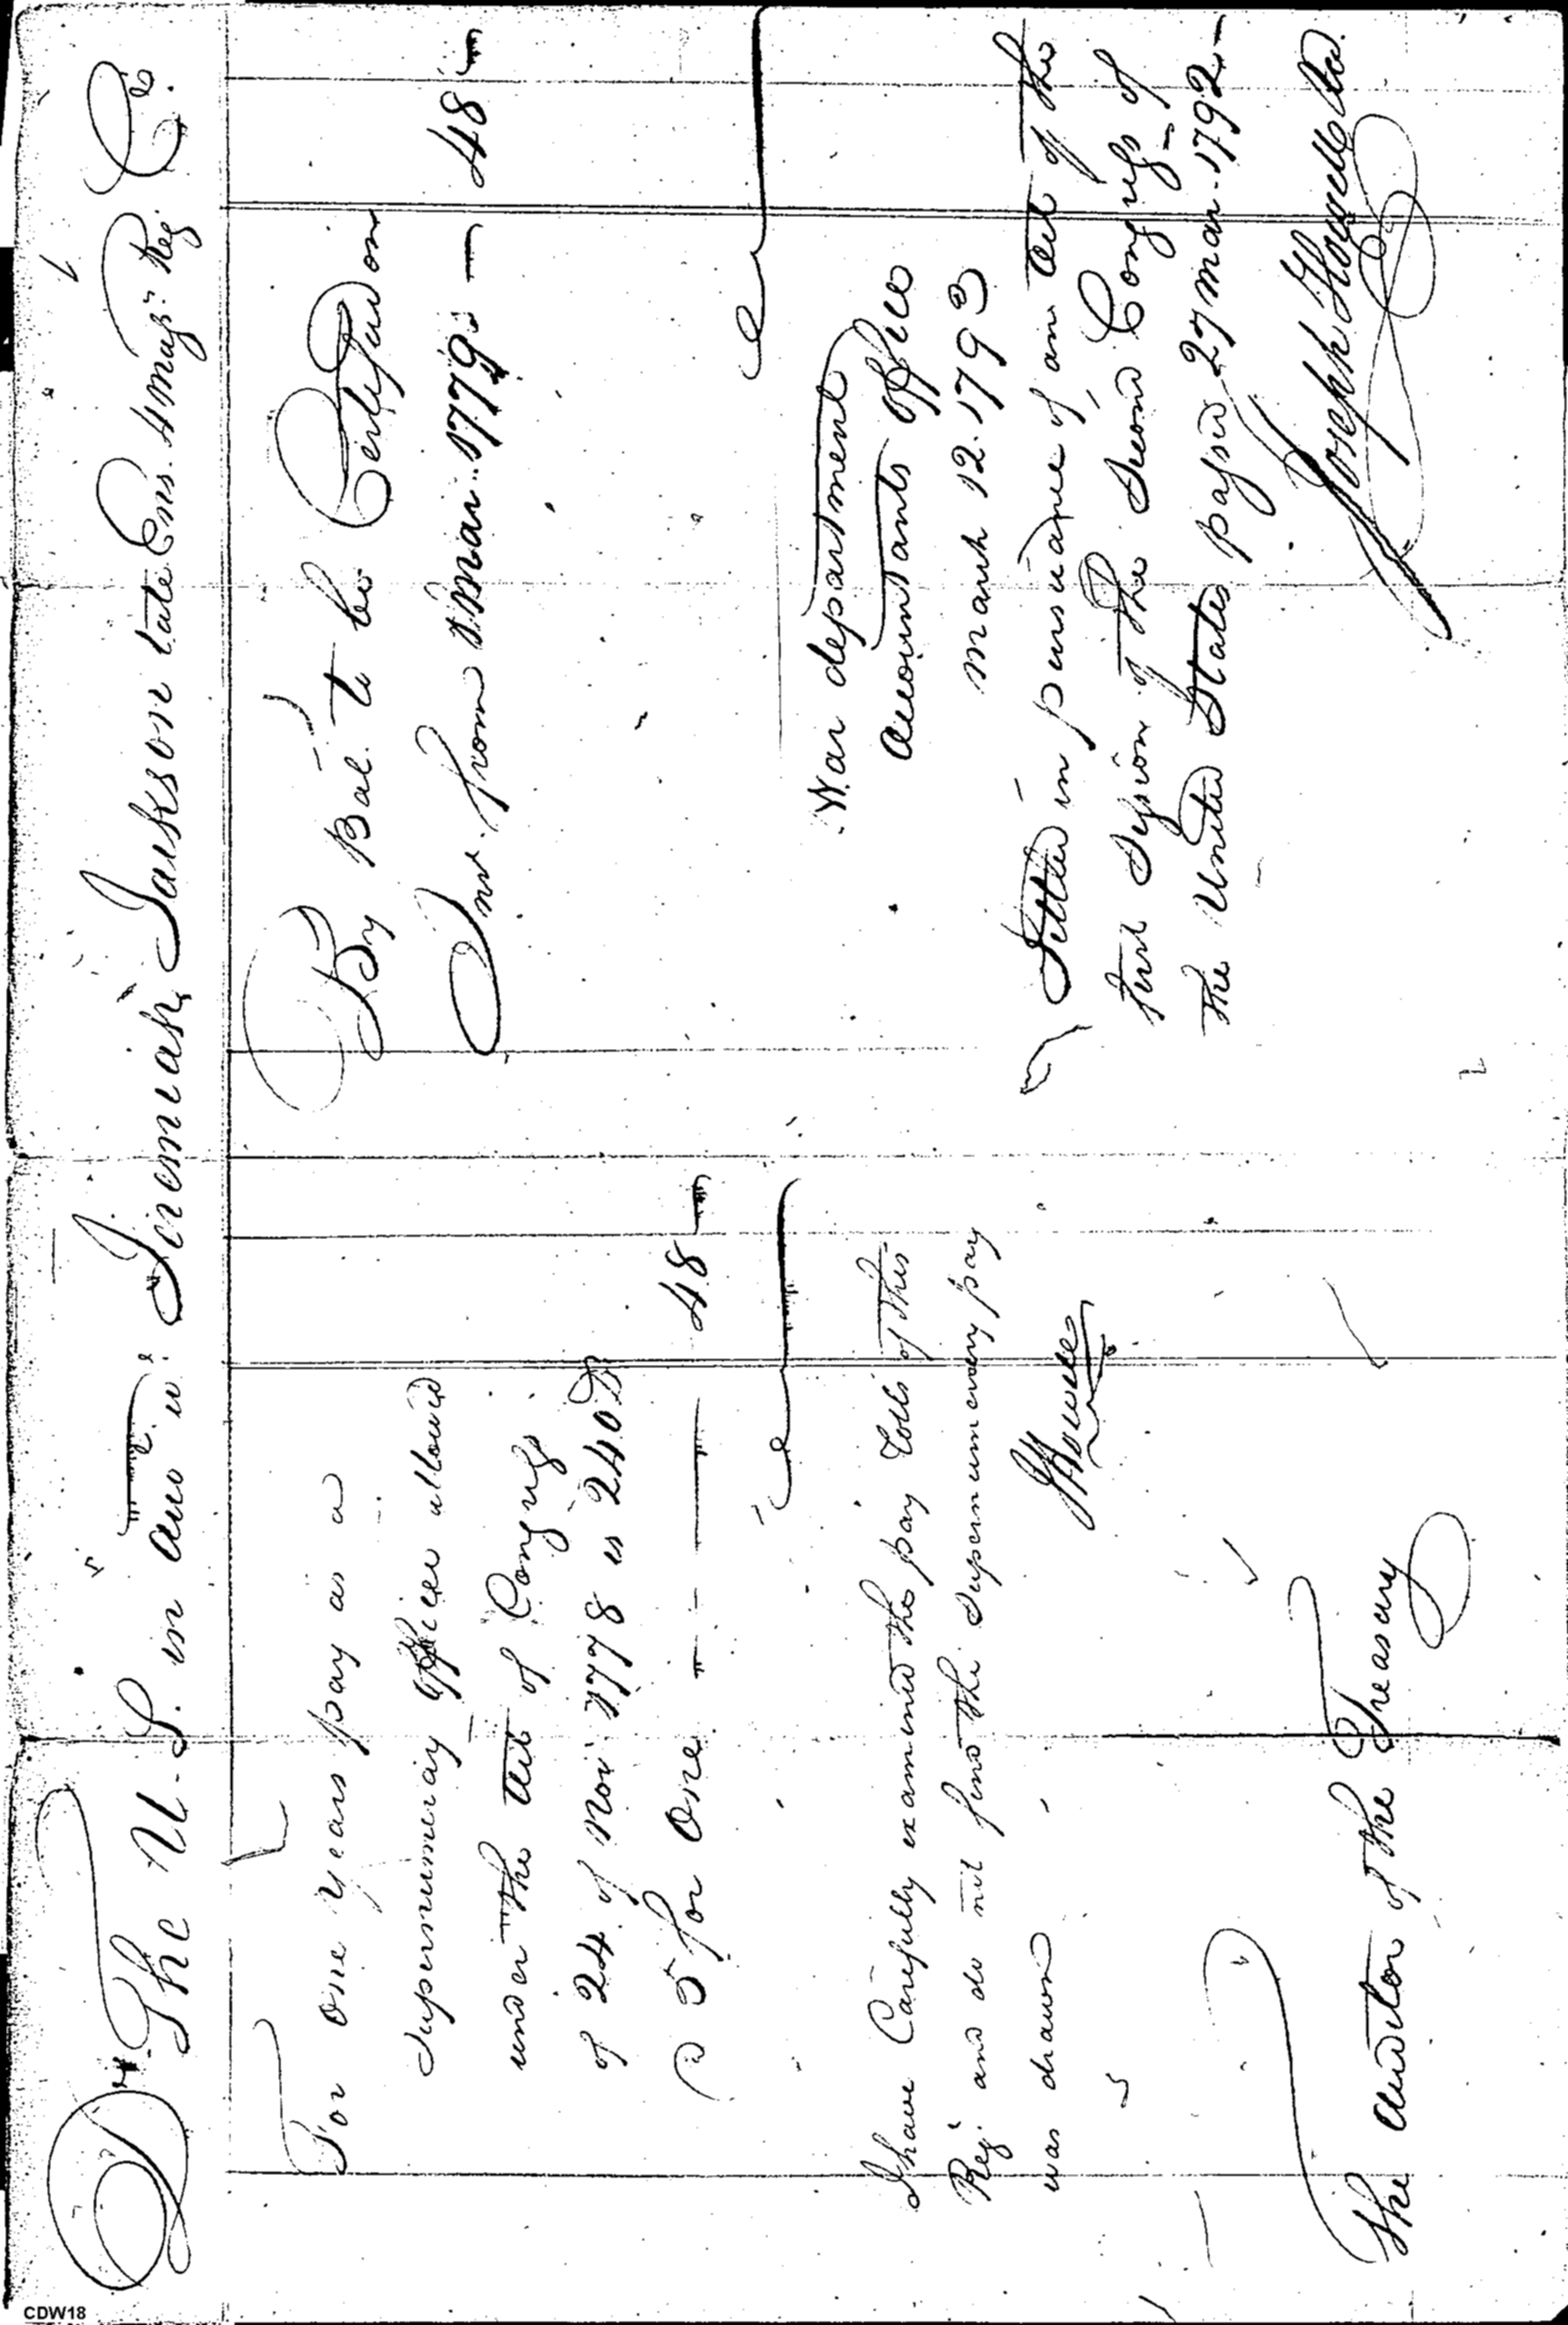 Dr. The U.S. in Acco. t w. Jeremiah Jackson late Ens. 4 Mass. Reg. Cr.
For one years pay as a
supernumerary officer allowed
under the Act of Congress
of 24 of Nov 1778 is 240 D
@ 5 for one 48
I have Carefully examined the pay rolls of this
Reg. and do not find the supernumerary pay
was drawn
JHowell
The Auditor of the Treasury
By Bal. to be Certified on
Int. from 1 Mar. 1779 48
War department
Accountants Office
March 12. 1793
Settled in pursuance of an Act of the
first Session of the Second Congress of
the United States passed 27 Mar. 1792
Joseph Howell
CDW18